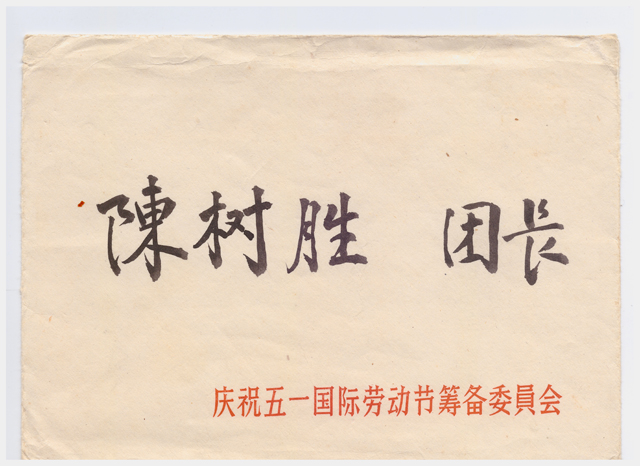 陳树胜 团長
庆祝五一国际劳动节筹备委員会